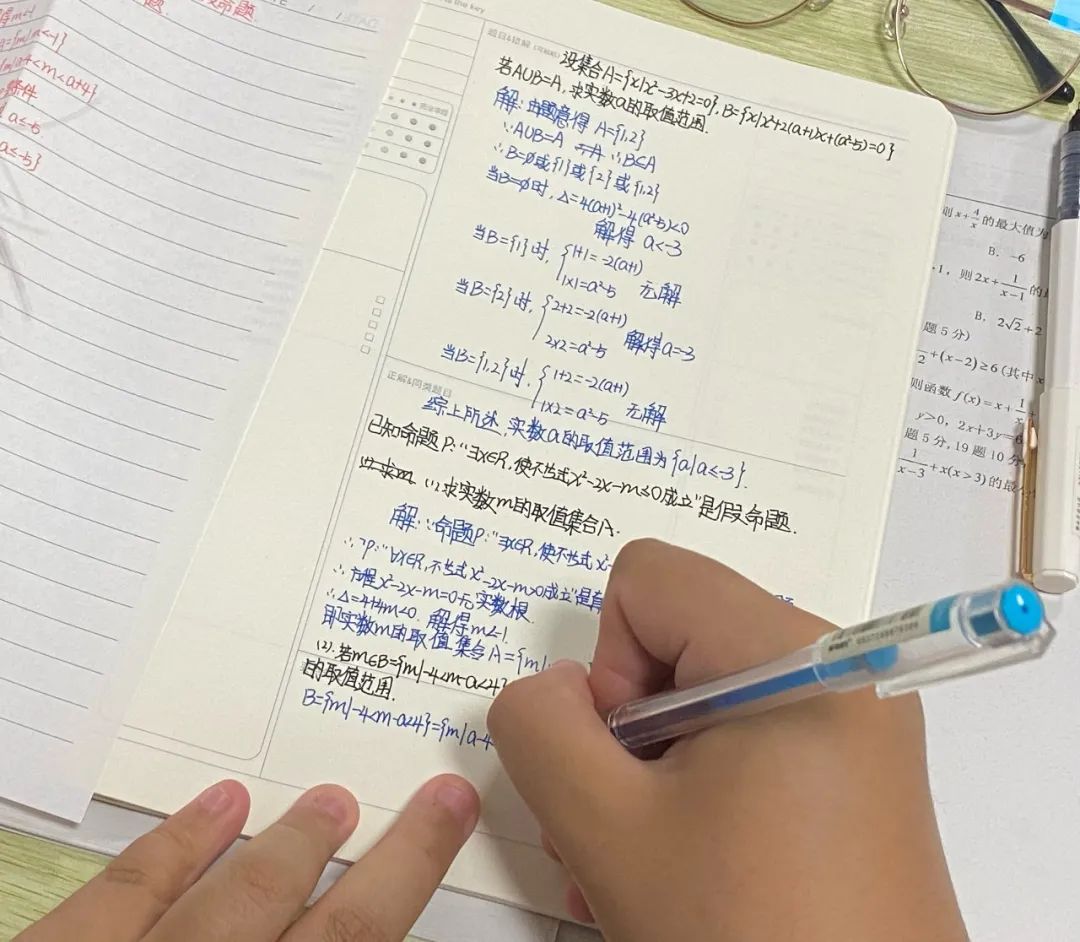 命题
A={m|a<-1}
a≤-5
a≤-5}
DATE / /
to the key
题目&错解
设集合A={x|x²-3x+2=0}, B={x|x²+2(a+1)x+(a²-5)=0}
若A∪B=A, 求实数a的取值范围.
解: 由题意得 A={1,2}
∵A∪B=A ∴B⊆A
∴B=∅或{1}或{2}或{1,2}
当B=∅时, Δ=4(a+1)²-4(a²-5)<0
解得 a<-3
当B={1}时, {1+1=-2(a+1)
1×1=a²-5 无解
当B={2}时, {2+2=-2(a+1)
2×2=a²-5 解得a=-3
当B={1,2}时, {1+2=-2(a+1)
1×2=a²-5 无解
正解&同类题目
综上所述, 实数a的取值范围为{a|a≤-3}.
已知命题P:"∃x∈R, 使不等式x²-2x-m≤0成立"是假命题.
(1)求实数m的取值集合A.
解: ∵命题P:"∃x∈R, 使不等式x²-
∴¬P:"∀x∈R, 不等式x²-2x-m>0成立"是真
∴方程x²-2x-m=0无实数根
∴Δ=4+4m<0 解得m<-1
即实数m的取值集合A={m|
(2).若m∈B={m|-4<m-a<4}
的取值范围.
B={m|-4<m-a<4}={m|a-4
则x+4/x的最大值为
B. -6
则2x+1/(x-1)的
B. 2√2+2
题5分)
+(x-2)≥6(其中x
则函数f(x)=x+1/x
y>0, 2x+3y=6
题5分, 19题10分
1/(x-3)+x(x>3)的最